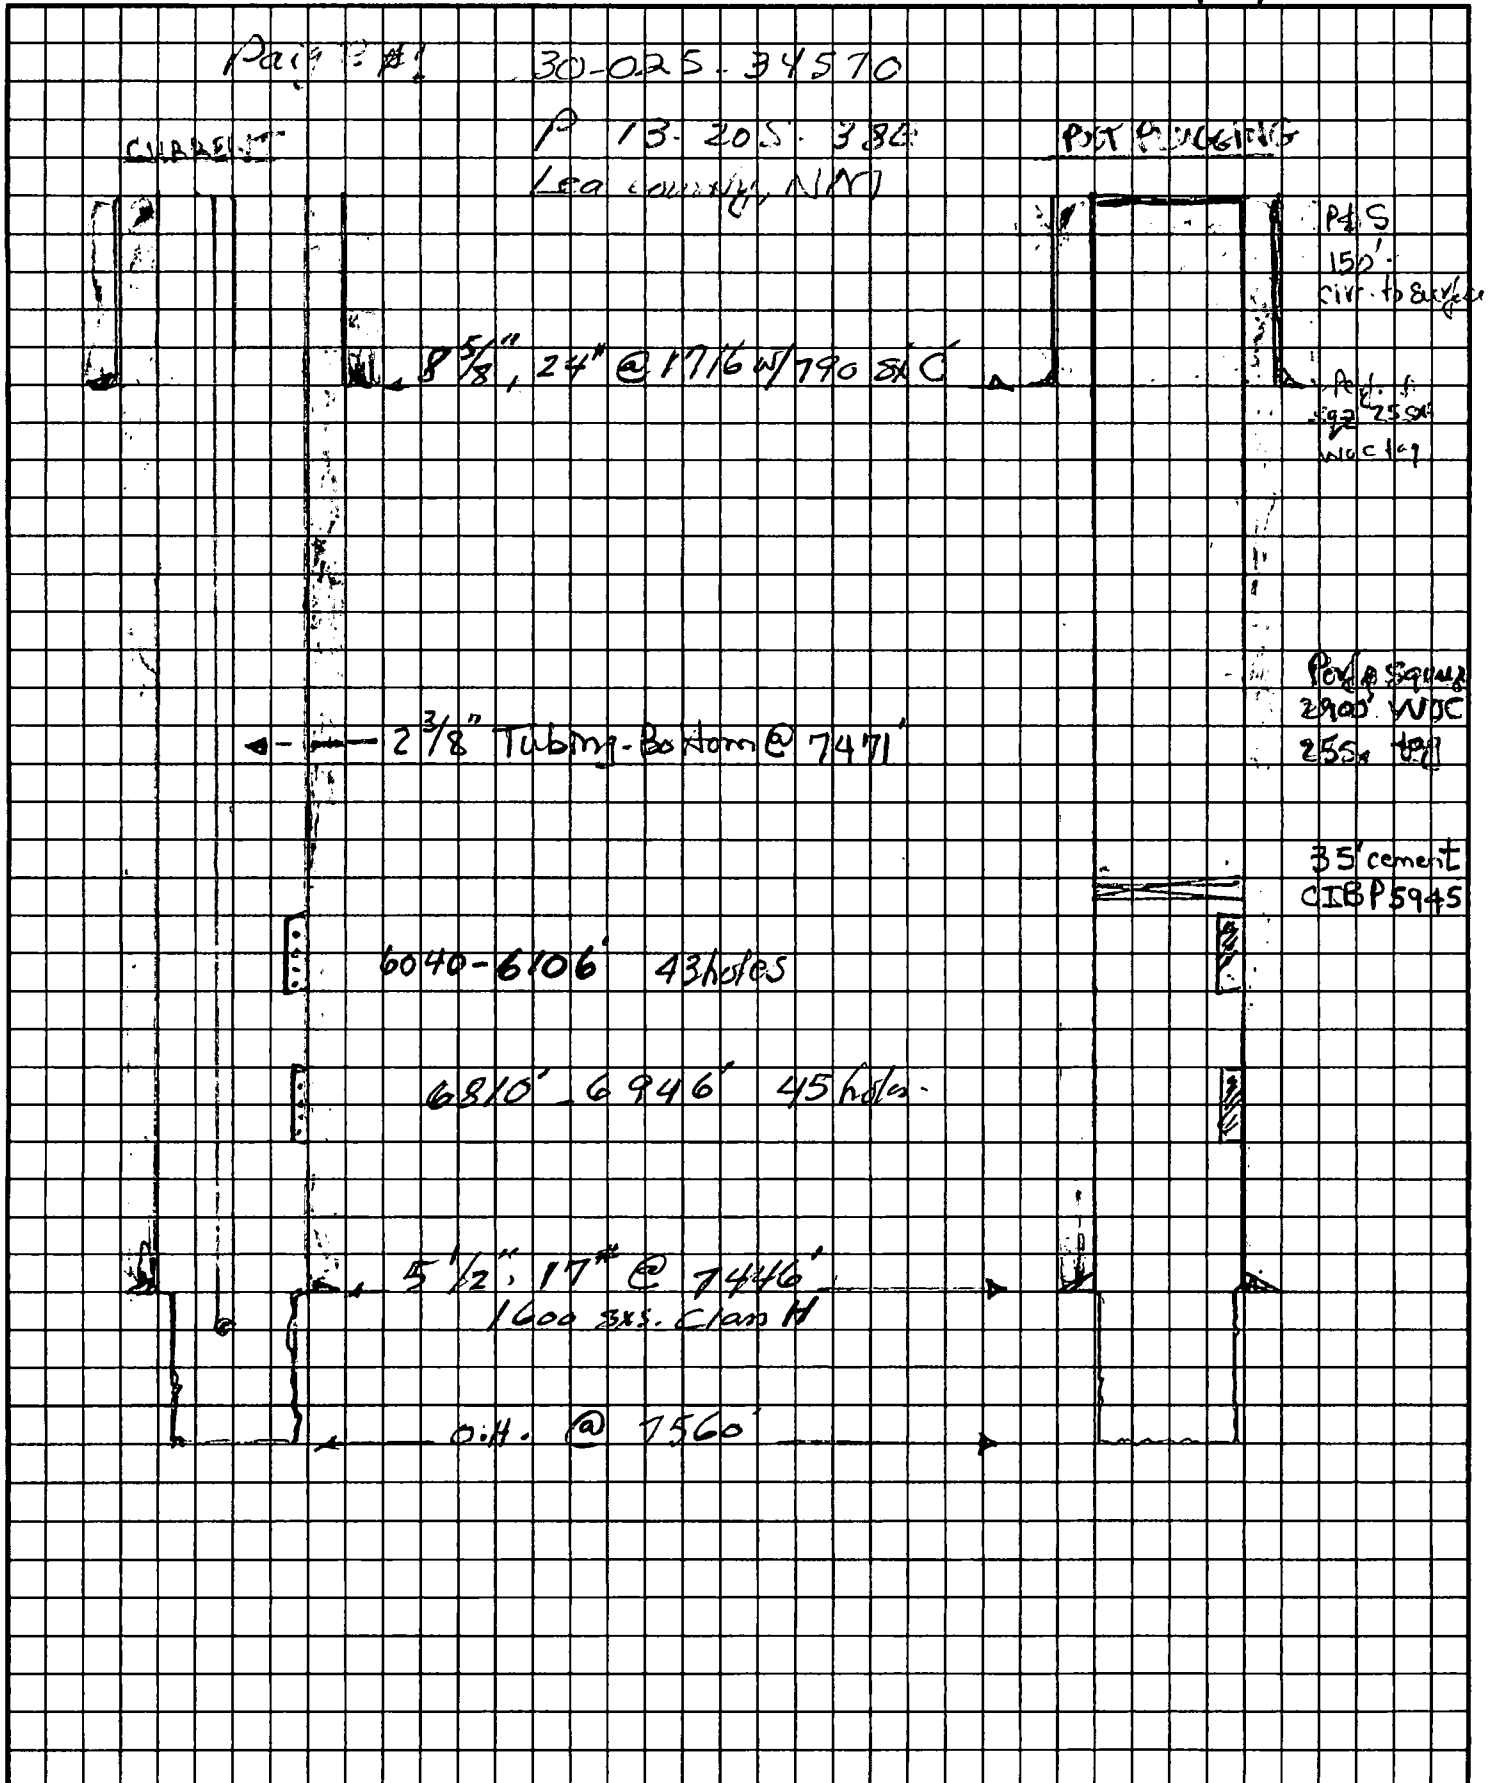 #1 30-025-34570
P 13-20S-38E
CURRENT
POST PLUGGING
Lea county, NM
P&S
150'
circ. to surface
8 5/8", 24# @ 1716 w/790 sx C
sqz 25sx
WOC tag
Perf & Squeeze
2900' WOC
25sx tag
2 3/8" Tubing-Bottom @ 7471'
35' cement
CIBP 5945
6040-6106' 43 holes
6810'-6946' 45 holes
5 1/2", 17# @ 7446'
1600 sxs. Class H
O.H. @ 7560'